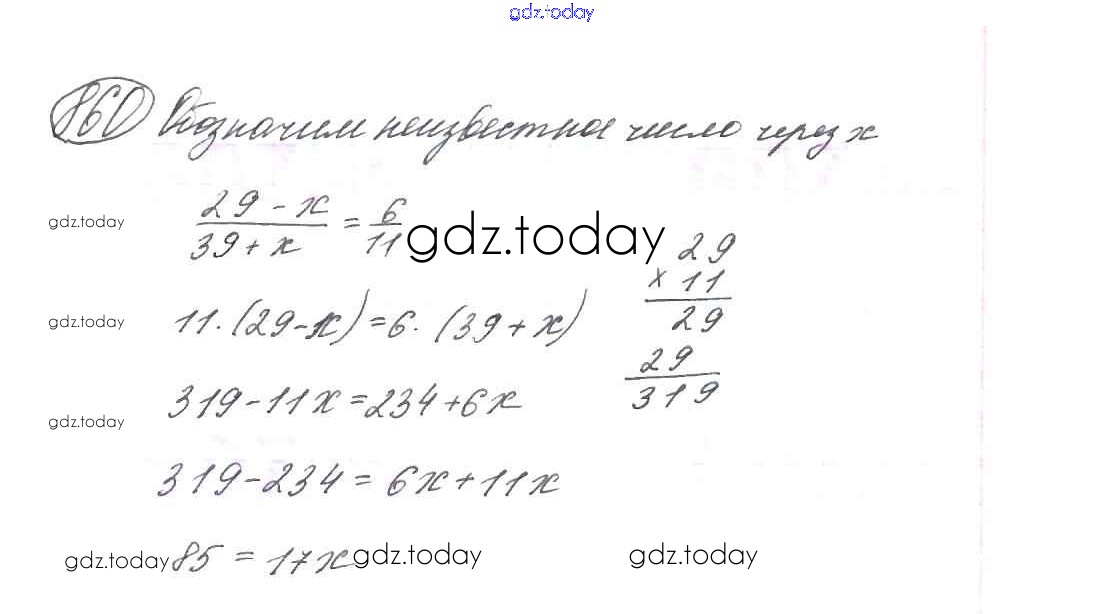 gdz.today
860 Обозначим неизвестное число через x
gdz.today
29 - x / 39 + x = 6 / 11
gdz.today
29
x 11
29
29
319
gdz.today
11 · (29 - x) = 6 · (39 + x)
319 - 11x = 234 + 6x
gdz.today
319 - 234 = 6x + 11x
gdz.today
85 = 17x
gdz.today
gdz.today